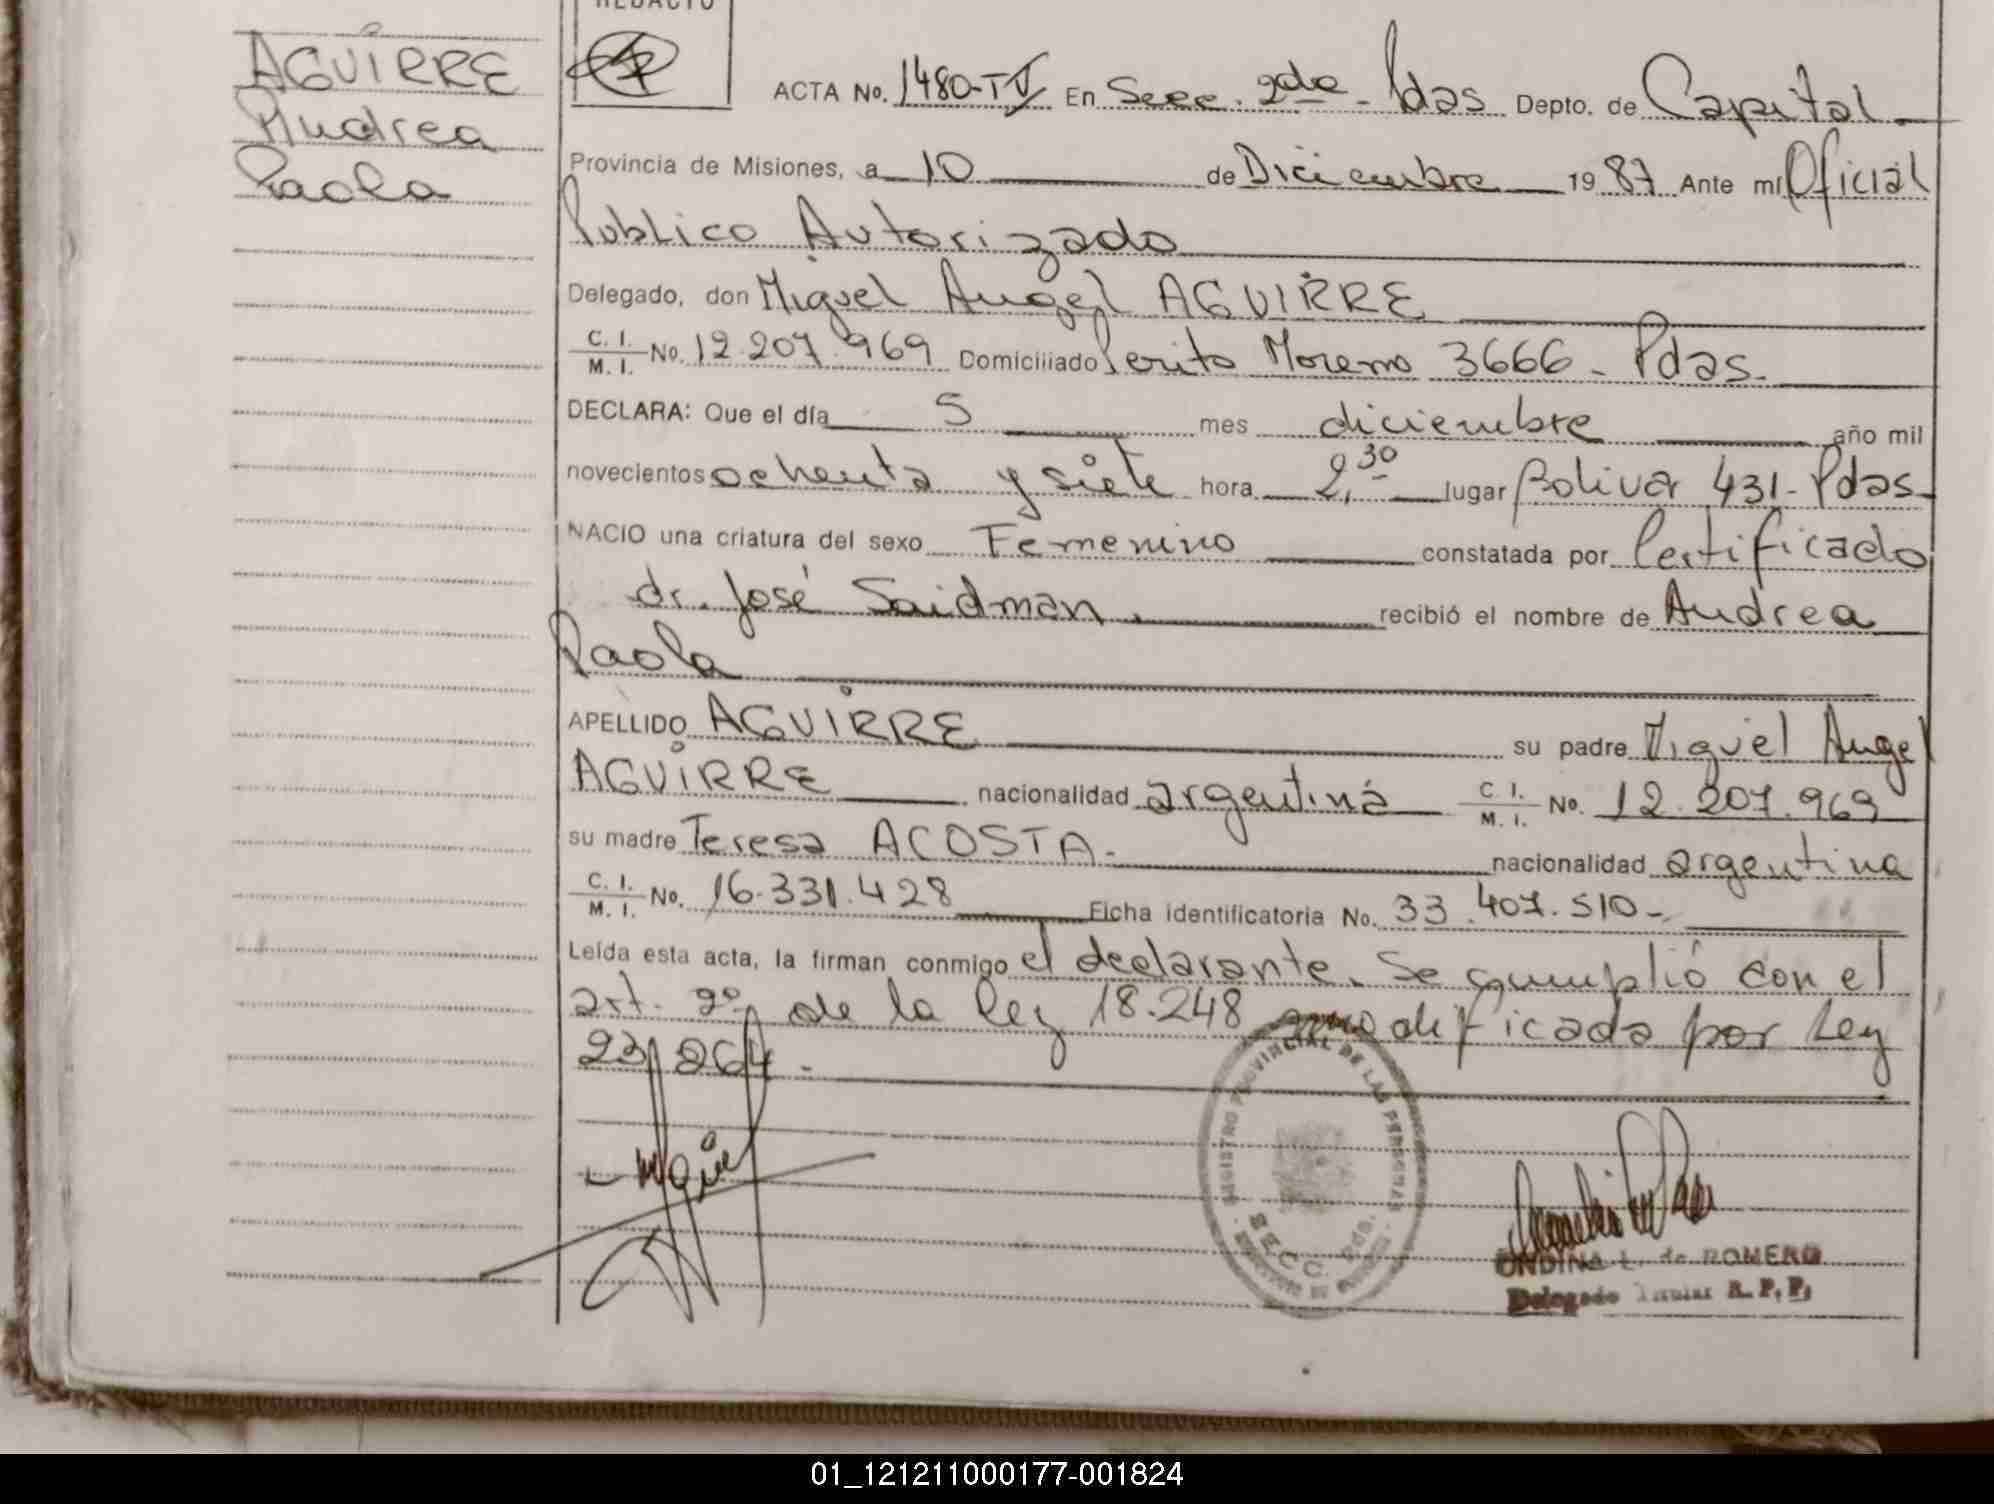 REDACTO
AGUIRRE
Andrea
Paola
ACTA No. 1480-TV En Secc. 2da - Pdas Depto. de Capital
Provincia de Misiones, a 10 de Diciembre 1987 Ante mí Oficial
Publico Autorizado
Delegado, don Miguel Angel AGUIRRE
C. I.
M. I. No. 12.207.969 Domiciliado Perito Moreno 3666 - Pdas.
DECLARA: Que el día 5 mes diciembre año mil
novecientos ochenta y siete hora 2,30 lugar Bolivar 431 - Pdas
NACIO una criatura del sexo Femenino constatada por Certificado
dr. José Saidman. recibió el nombre de Andrea
Paola
APELLIDO AGUIRRE su padre Miguel Angel
AGUIRRE nacionalidad argentina C. I. M. I. No. 12.207.969
su madre Teresa ACOSTA. nacionalidad argentina
C. I.
M. I. No. 16.331.428 Ficha identificatoria No. 33.407.510-
Leída esta acta, la firman conmigo el declarante. Se cumplió con el
art. 2º de la Ley 18.248 modificada por Ley
23.264.
REGISTRO PROVINCIAL DE LAS PERSONAS
SECC. 2da.
ONDINA L. de ROMERO
Delegado Titular R. P. P.
01_121211000177-001824